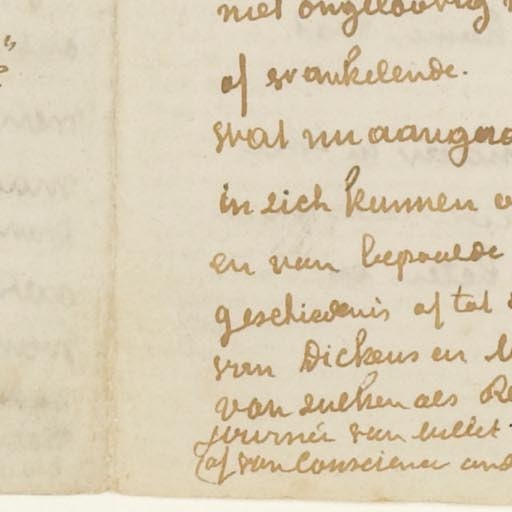 niet ongeloovig
of wankelende.
wat nu aanga
in zich kunnen
en van bepaalde
geschiedenis of tot
van Dickens en
van zulken als Re
journée van
of van Conscience and